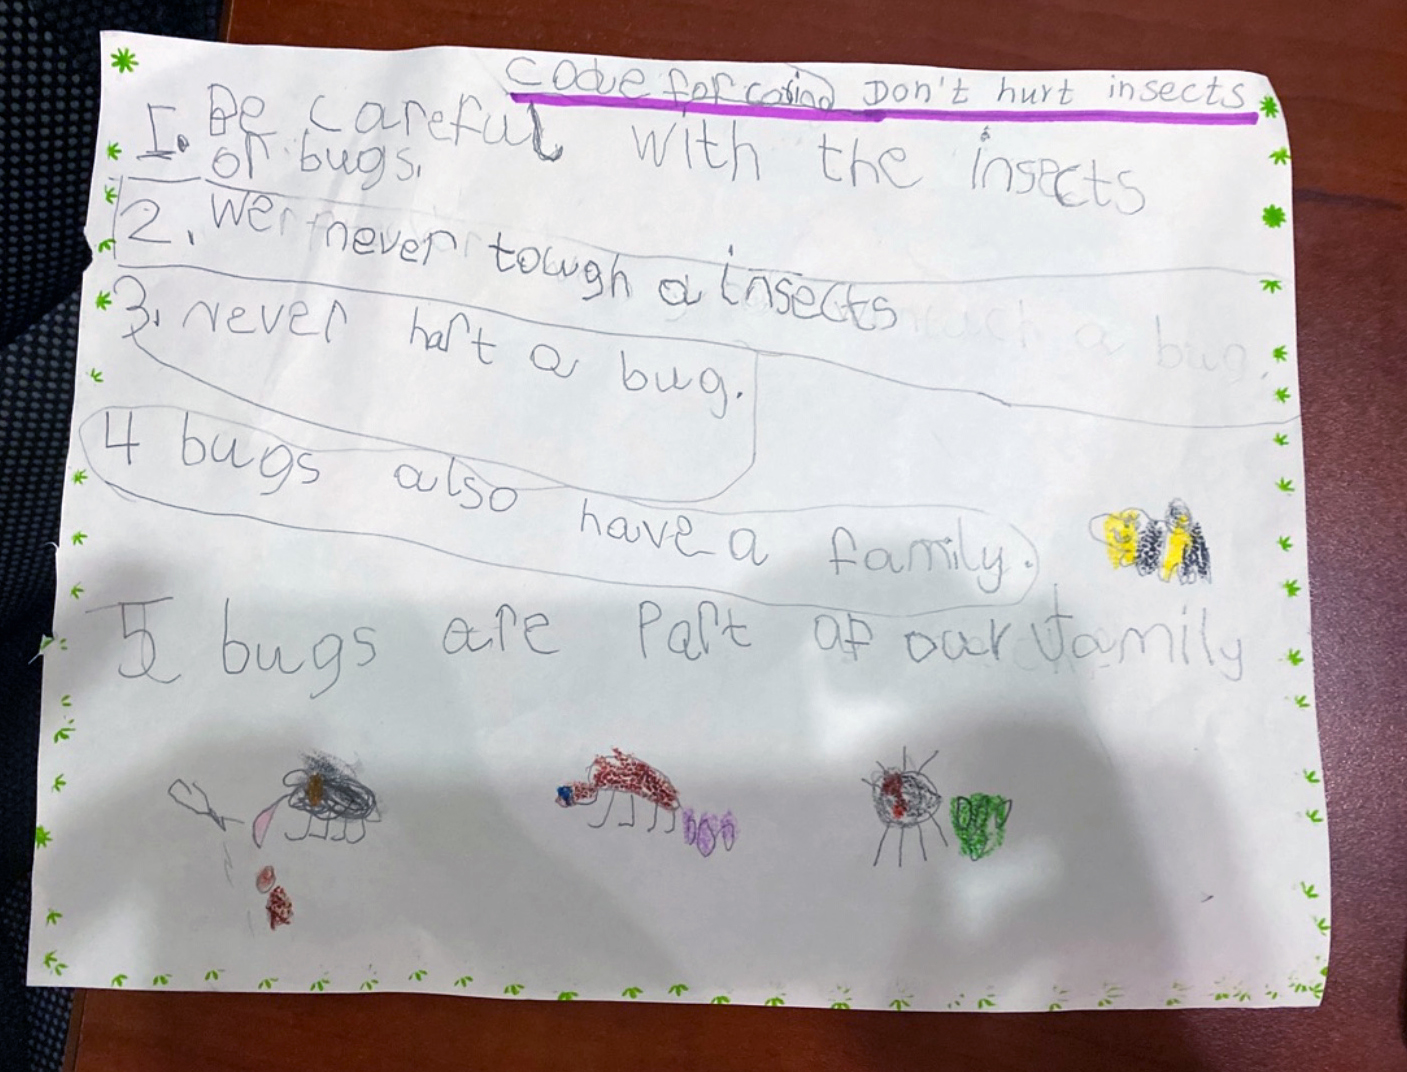 code for caring Don't hurt insects
1. Be careful with the insects
or bugs.
2. We never tough a insects
3. never hart a bug.
4 bugs also have a family.
5 bugs are Part of our family